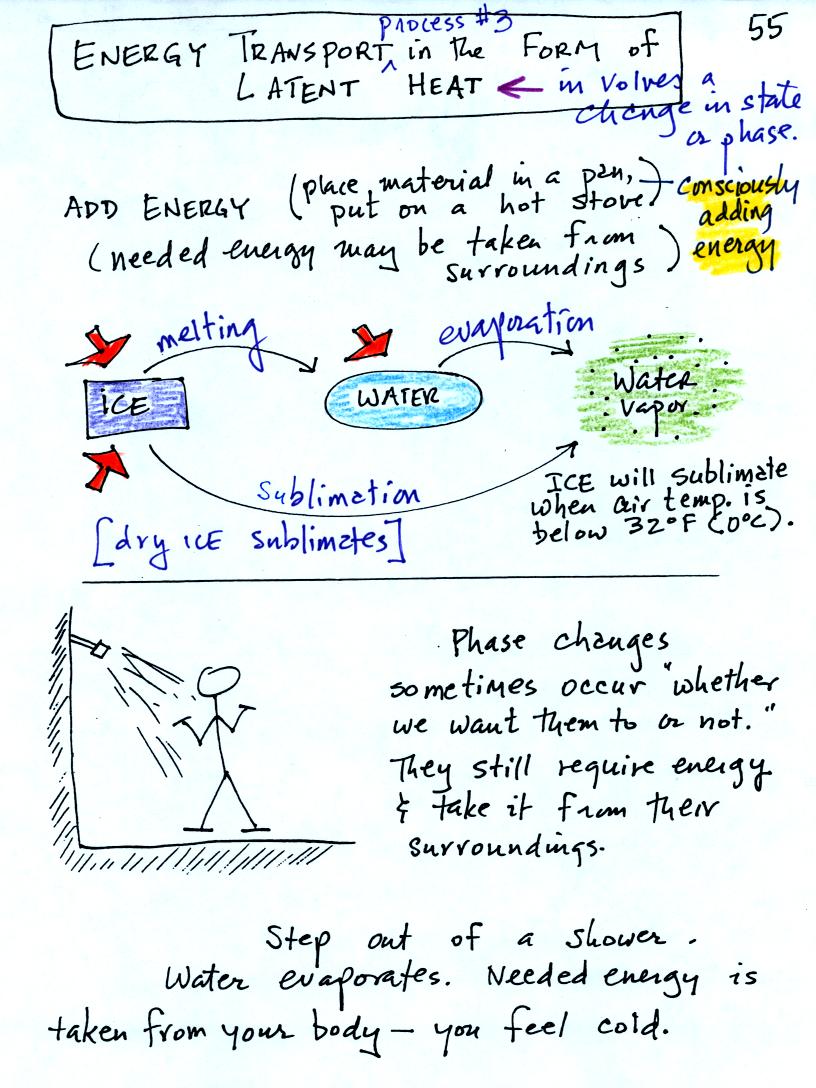 55
process #3
ENERGY TRANSPORT ^ in the FORM of
LATENT HEAT ← in volves a
change in state
or phase.
ADD ENERGY (place material in a pan,
put on a hot stove)
consciously
adding
energy
(needed energy may be taken from
surroundings)
melting
evaporation
ICE
WATER
Water
vapor
Sublimation
[dry ICE sublimates]
ICE will sublimate
when air temp. is
below 32°F (0°C).
Phase changes
sometimes occur "whether
we want them to or not."
They still require energy
& take it from their
surroundings.
Step out of a shower.
Water evaporates. Needed energy is
taken from your body — you feel cold.